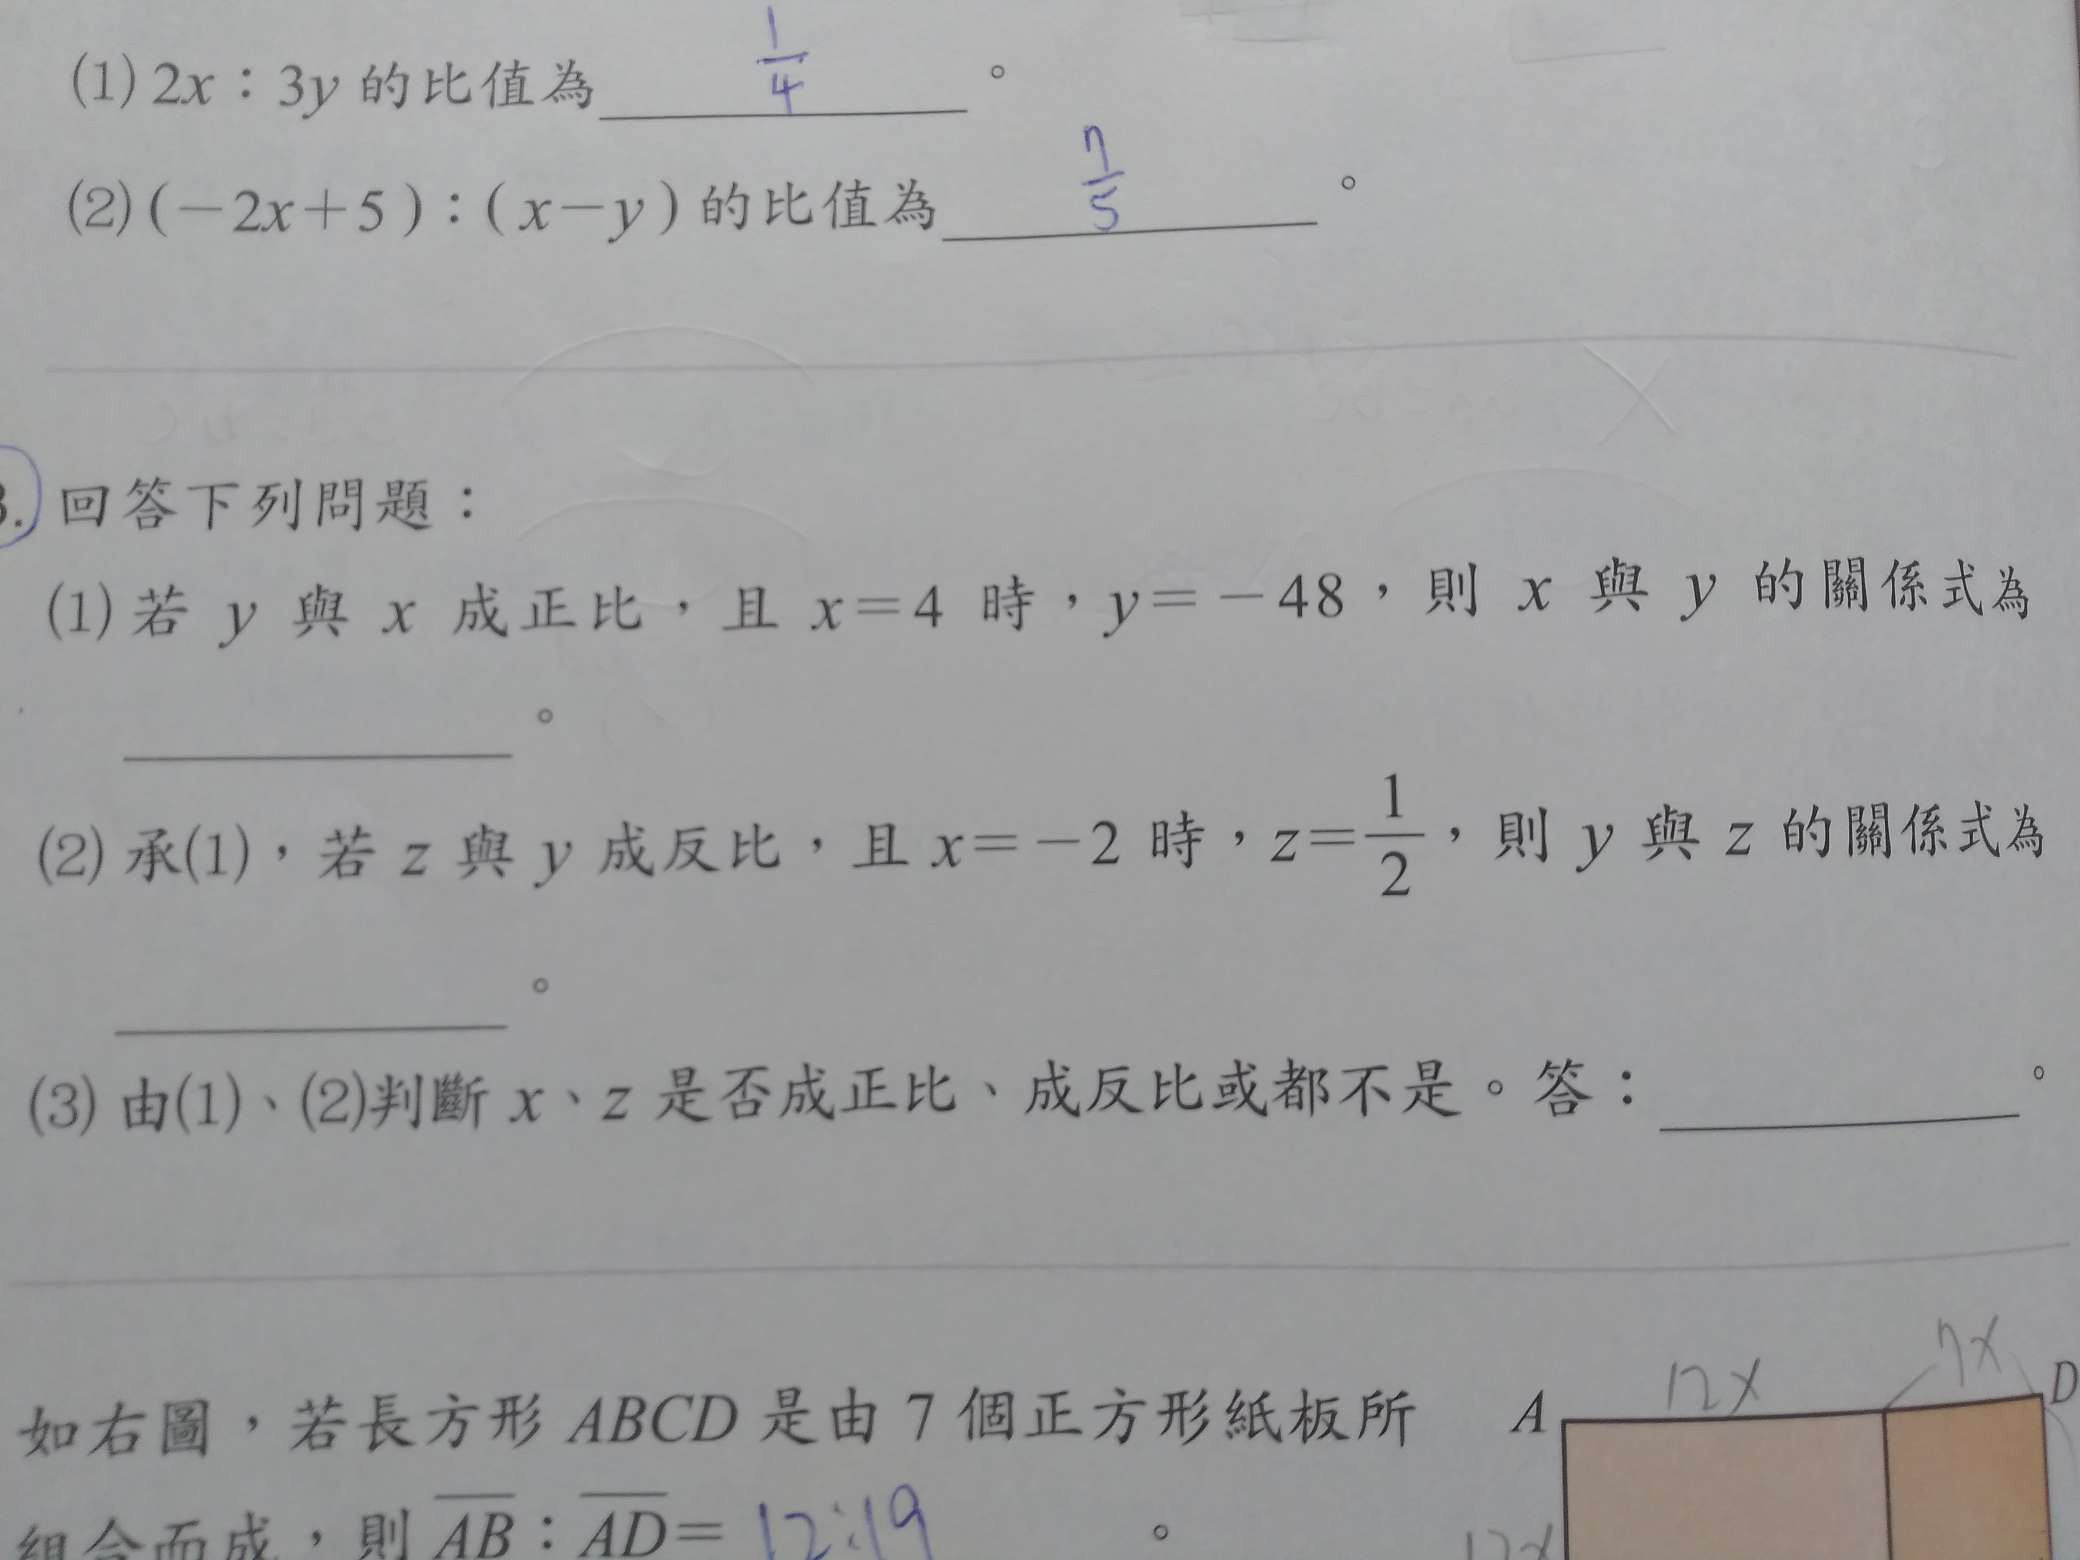 (1) 2x：3y 的比值為 1/4 。
(2) (－2x＋5)：(x－y) 的比值為 7/5 。
3. 回答下列問題：
(1) 若 y 與 x 成正比，且 x＝4 時，y＝－48，則 x 與 y 的關係式為
。
(2) 承(1)，若 z 與 y 成反比，且 x＝－2 時，z＝1/2，則 y 與 z 的關係式為
。
(3) 由(1)、(2)判斷 x、z 是否成正比、成反比或都不是。答： 。
如右圖，若長方形 ABCD 是由 7 個正方形紙板所
組合而成，則 AB：AD＝ 12:19 。
12x 7x
A D
12x